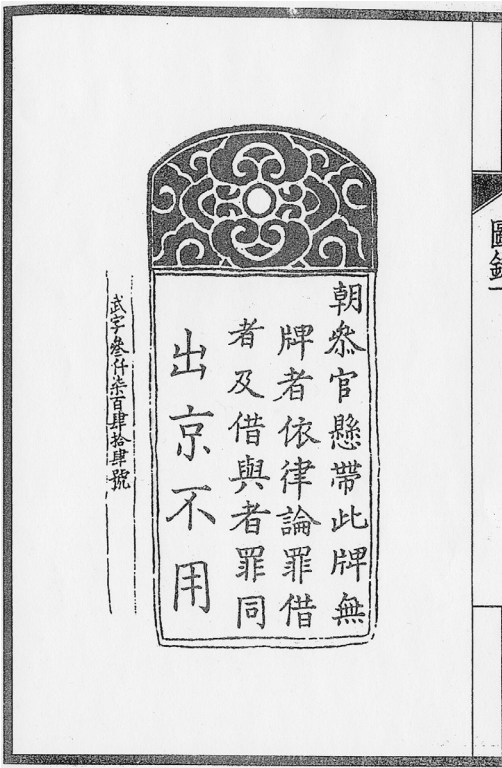 圖録一
朝叅官懸帶此牌無
牌者依律論罪借
者及借與者罪同
出京不用
武字叄仟柒百肆拾肆號